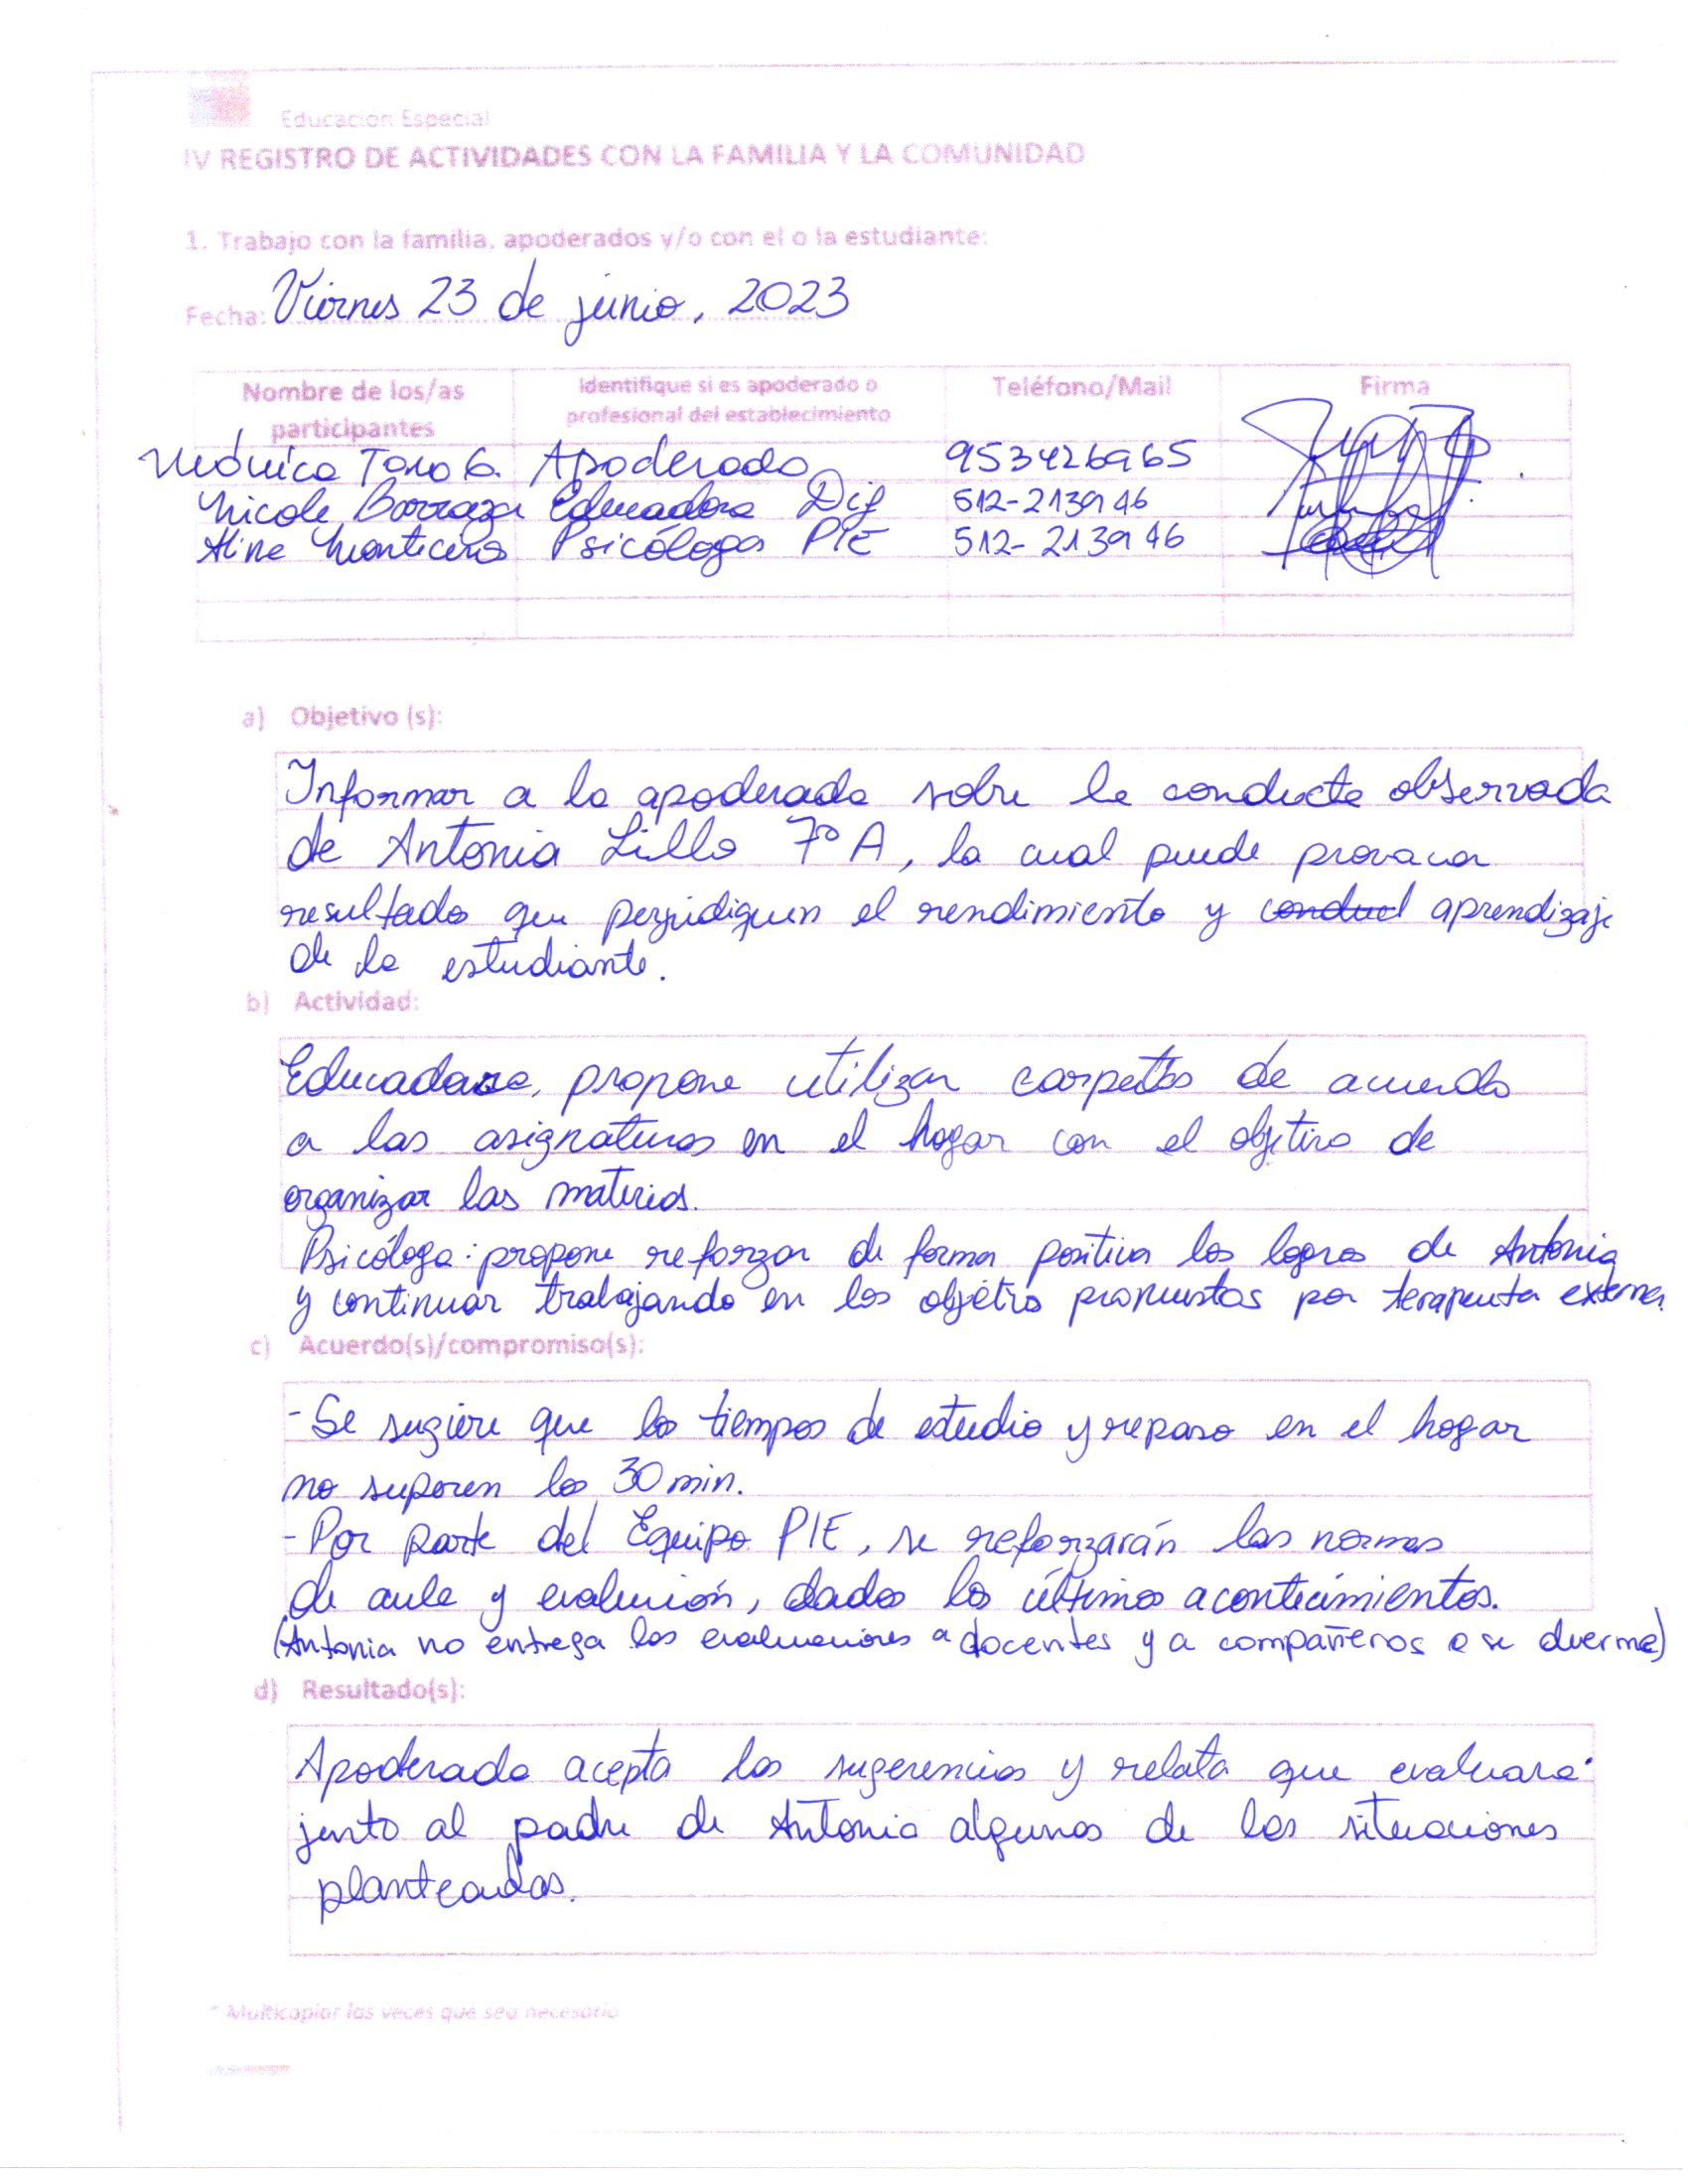 Educación Especial
IV REGISTRO DE ACTIVIDADES CON LA FAMILIA Y LA COMUNIDAD
1. Trabajo con la familia, apoderados y/o con el o la estudiante:
Fecha: Viernes 23 de junio, 2023
Nombre de los/as participantes Identifique si es apoderado o profesional del establecimiento Teléfono/Mail Firma
Mónica Toro G. Apoderado 953426965
Nicole Barraza Educadora Dif 512-213946
Aline Monticino Psicóloga PIE 512-213946
a) Objetivo (s):
Informar a la apoderada sobre la conducta observada
de Antonia Lillo 7º A, la cual puede provocar
resultado que perjudiquen el rendimiento y conduct aprendizaje
de la estudiante.
b) Actividad:
Educadora, propone utilizar carpetas de acuerdo
a las asignaturas en el hogar con el objetivo de
organizar las materias.
Psicóloga: propone reforzar de forma positiva los logros de Antonia
y continuar trabajando en los objetivos propuestos por terapeuta externa
c) Acuerdo(s)/compromiso(s):
- Se sugiere que los tiempos de estudio y repaso en el hogar
no superen los 30 min.
- Por parte del Equipo PIE, se reforzarán las normas
de aula y evaluación, dados los últimos acontecimientos.
(Antonia no entrega las evaluaciones a docentes y a compañeros o se duerme)
d) Resultado(s):
Apoderada acepta las sugerencias y relata que evaluara
junto al padre de Antonia algunas de las situaciones
planteadas.
* Multicopiar las veces que sea necesario